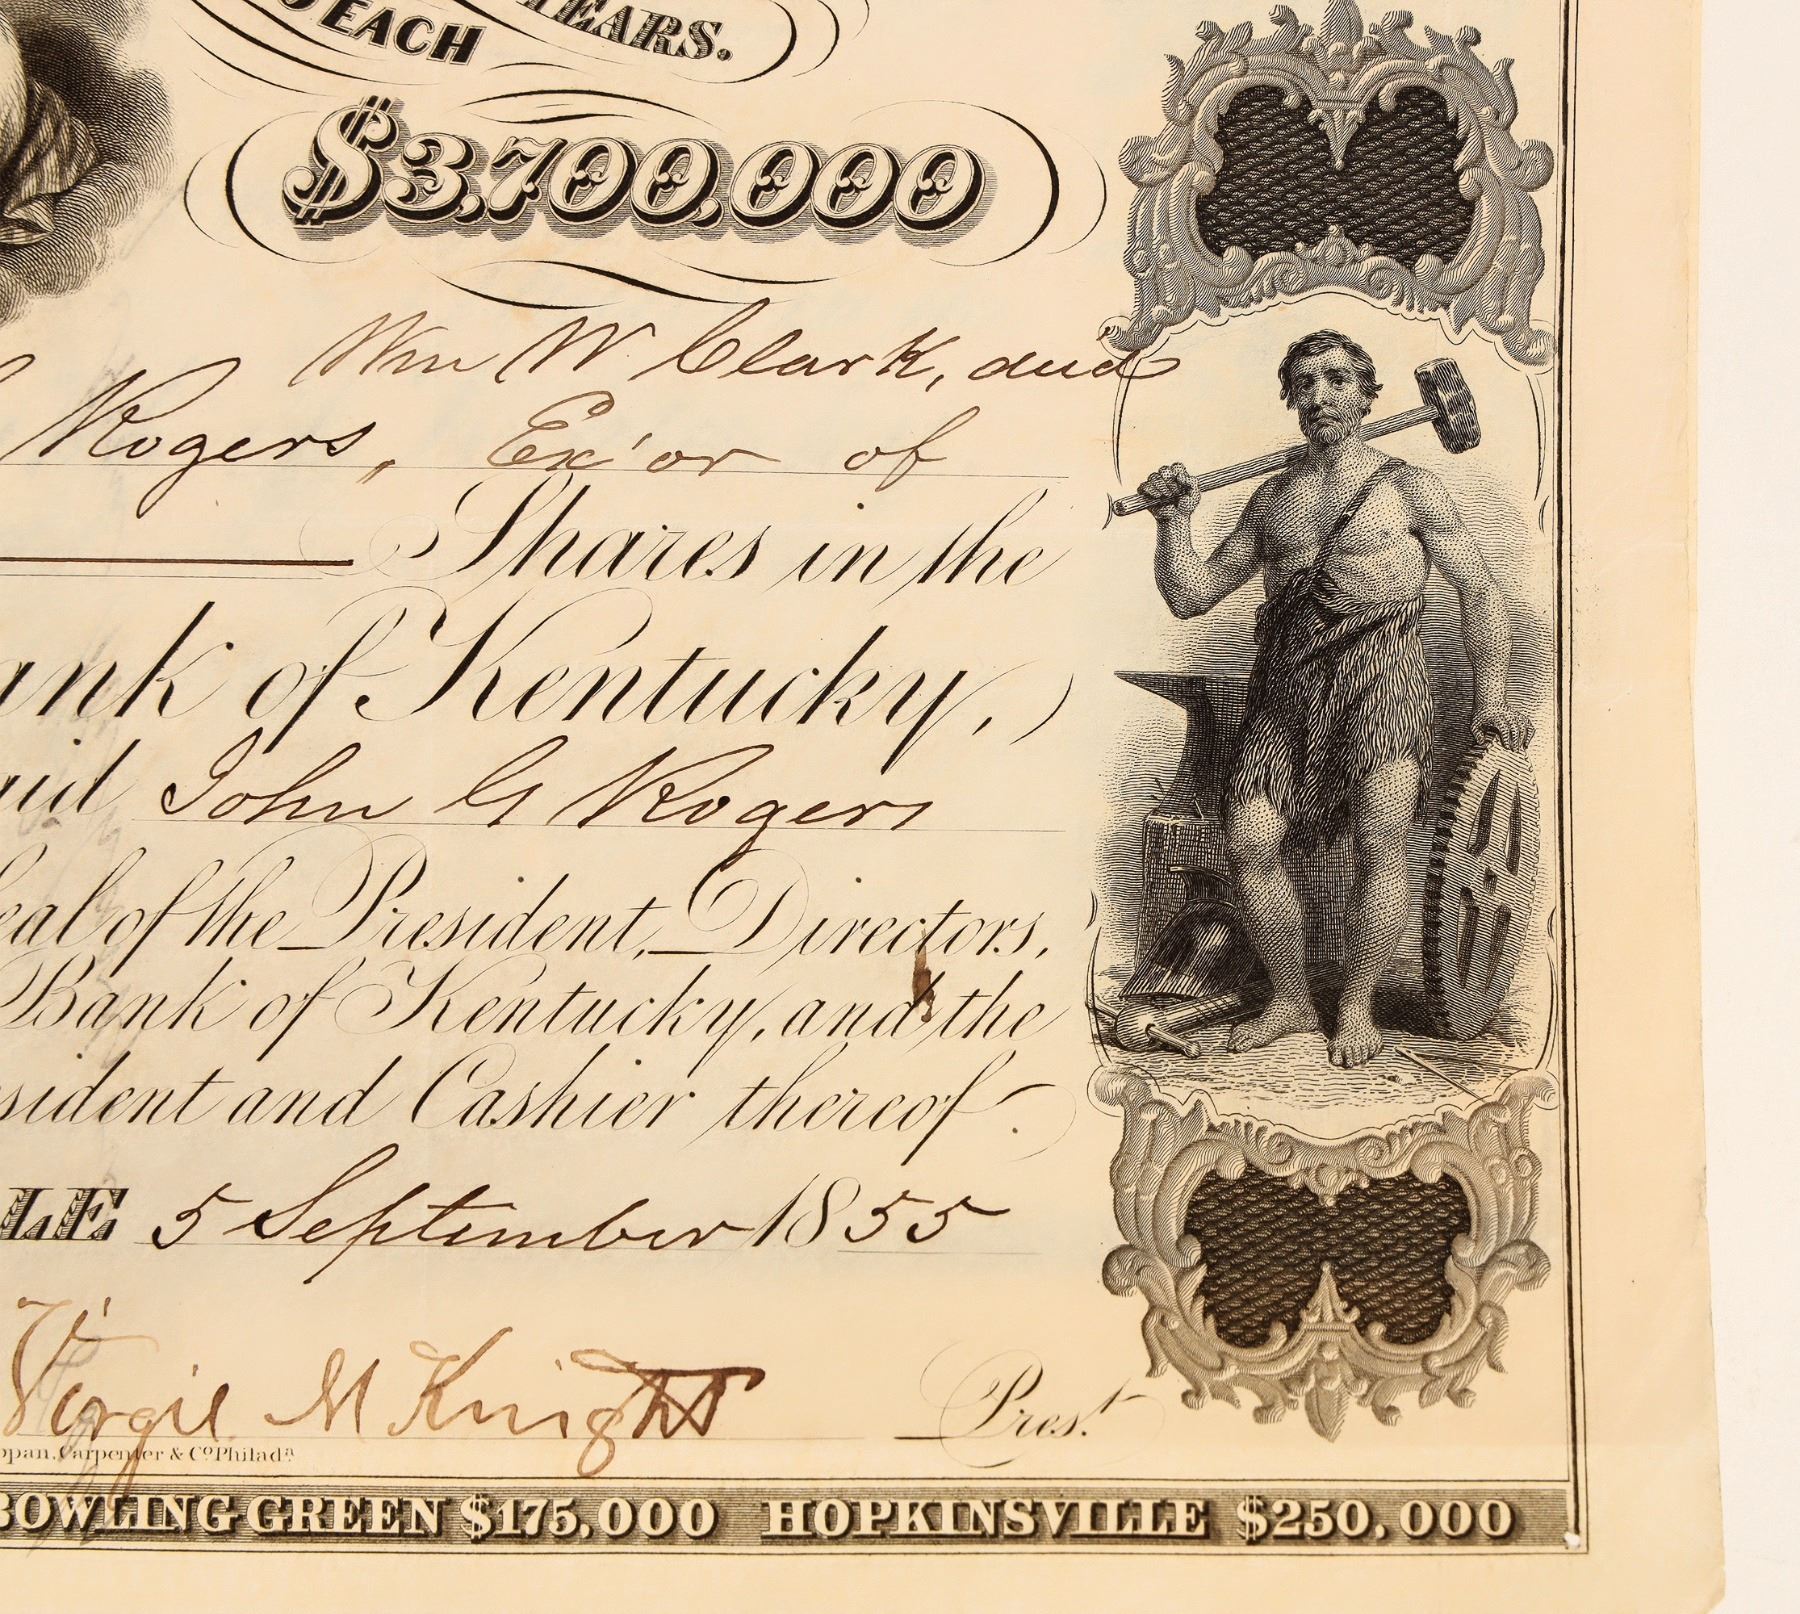 EACH
YEARS.
$3,700,000
Wm W Clark, and
Rogers, Ex'or of
Shares in the
ank of Kentucky,
aid John G Rogers
eal of the President, Directors,
Bank of Kentucky, and the
sident and Cashier thereof.
LE 5 September 1855
Virgil McKnight Prest.
ppan, Carpenter & Co Philada
BOWLING GREEN $175,000 HOPKINSVILLE $250,000